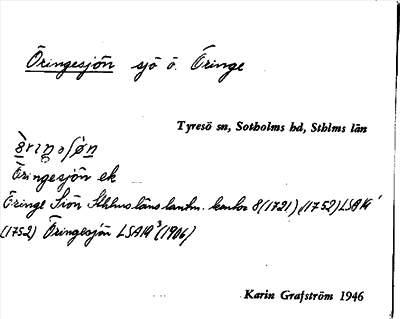 Öringesjön sjö ö. Öringe
Tyresö sn, Sotholms hd, Sthlms län
Öringesjön ek
Öringe Siön Sthlms läns lantm. kontor 8 (1721), (1752) LSA 19¹
(1752) Öringesjön LSA 19³ (1906)
Karin Grafström 1946